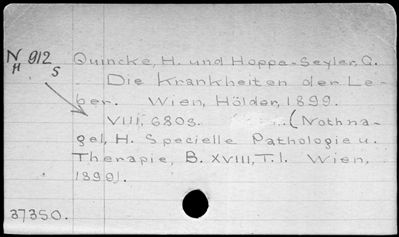 N 912 Quincke, H. und Hoppe-Seyler, G.
H S
Die Krankheiten der Le-
ber. Wien, Hölder, 1899.
VIII, 680s. (Nothna-
gel, H. Specielle Pathologie u.
Therapie, B. XVIII, T. 1. Wien,
1899).
37350.